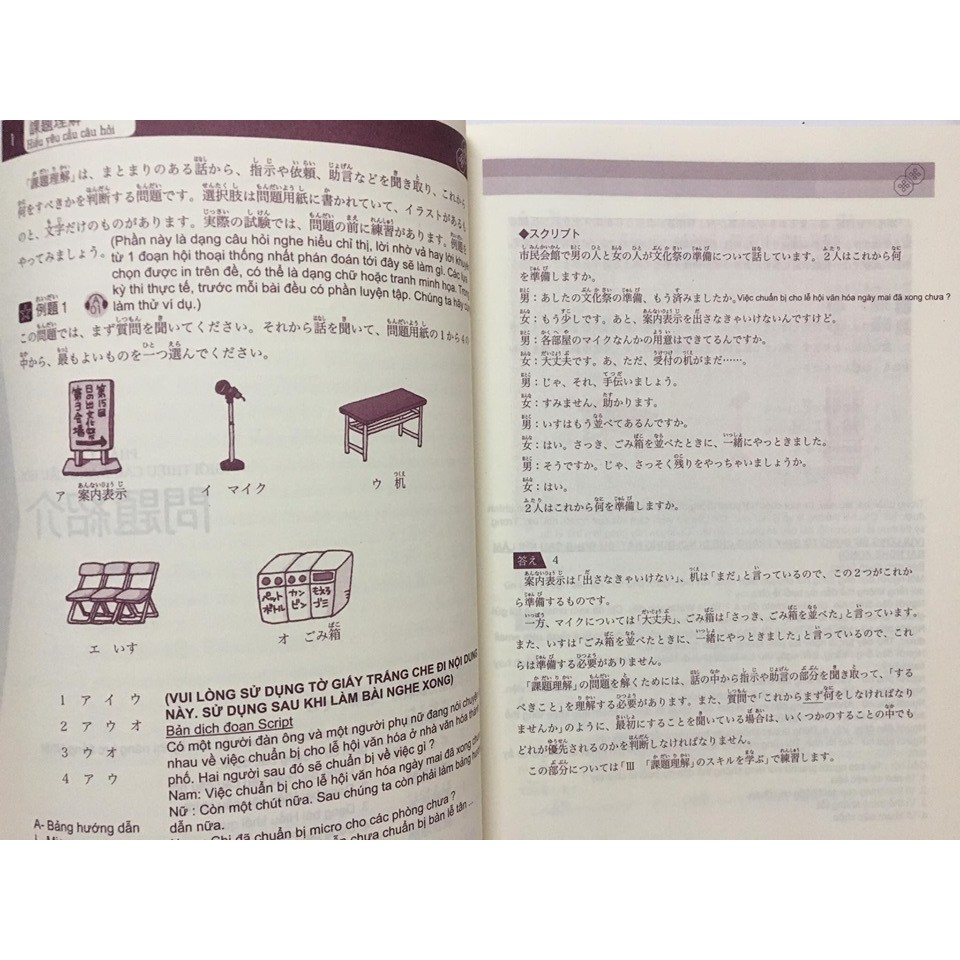 1
課題理解
Hiểu yêu cầu câu hỏi
「課題理解」は、まとまりのある話から、指示や依頼、助言などを聞き取り、これから
何をすべきかを判断する問題です。選択肢は問題用紙に書かれていて、イラストがあるも
のと、文字だけのものがあります。実際の試験では、問題の前に練習があります。例題を
やってみましょう。
(Phần này là dạng câu hỏi nghe hiểu chỉ thị, lời nhờ vả hay lời khuyên
từ 1 đoạn hội thoại thống nhất phán đoán tới đây sẽ làm gì. Các lựa
chọn được in trên đề, có thể là dạng chữ hoặc tranh minh họa. Trong
kỳ thi thực tế, trước mỗi bài đều có phần luyện tập. Chúng ta hãy cùng
làm thử ví dụ.)
例題1
この問題では、まず質問を聞いてください。それから話を聞いて、問題用紙の1から4の
中から、最もよいものを一つ選んでください。
第15回
日の出文化祭
第3会場
ア 案内表示
イ マイク
ウ 机
ペット
ボトル
カン
ビン
もえる
ゴミ
エ いす
オ ごみ箱
1 ア イ ウ
2 ア ウ オ
3 ウ オ
4 ア ウ
(VUI LÒNG SỬ DỤNG TỜ GIẤY TRẮNG CHE ĐI NỘI DUNG
NÀY. SỬ DỤNG SAU KHI LÀM BÀI NGHE XONG)
Bản dịch đoạn Script
Có một người đàn ông và một người phụ nữ đang nói chuyện
nhau về việc chuẩn bị cho lễ hội văn hóa ở nhà văn hóa thành
phố. Hai người sau đó sẽ chuẩn bị về việc gì ?
Nam: Việc chuẩn bị cho lễ hội văn hóa ngày mai đã xong chưa
Nữ : Còn một chút nữa. Sau chúng ta còn phải làm bảng hướng
dẫn nữa.
Chị đã chuẩn bị micro cho các phòng chưa ?
chưa chuẩn bị bàn lễ tân ...
A- Bảng hướng dẫn
問題紹介
◆スクリプト
市民会館で男の人と女の人が文化祭の準備について話しています。2人はこれから何
を準備しますか。
男：あしたの文化祭の準備、もう済みましたか。Việc chuẩn bị cho lễ hội văn hóa ngày mai đã xong chưa ?
女：もう少しです。あと、案内表示を出さなきゃいけないんですけど。
男：各部屋のマイクなんかの用意はできてるんですか。
女：大丈夫です。あ、ただ、受付の机がまだ……。
男：じゃ、それ、手伝いましょう。
女：すみません、助かります。
男：いすはもう並べてあるんですか。
女：はい。さっき、ごみ箱を並べたときに、一緒にやっときました。
男：そうですか。じゃ、さっそく残りをやっちゃいましょうか。
女：はい。
2人はこれから何を準備しますか。
答え 4
案内表示は「出さなきゃいけない」、机は「まだ」と言っているので、この2つがこれか
ら準備するものです。
一方、マイクについては「大丈夫」、ごみ箱は「さっき、ごみ箱を並べた」と言っています。
また、いすは「ごみ箱を並べたときに、一緒にやっときました」と言っているので、これ
らは準備する必要がありません。
「課題理解」の問題を解くためには、話の中から指示や助言の部分を聞き取って、「する
べきこと」を理解する必要があります。また、質問で「これからまず何をしなければなり
ませんか」のように、最初にすることを聞いている場合は、いくつかのすることの中でも
どれが優先されるのかを判断しなければなりません。
この部分については「Ⅲ 「課題理解」のスキルを学ぶ」で練習します。